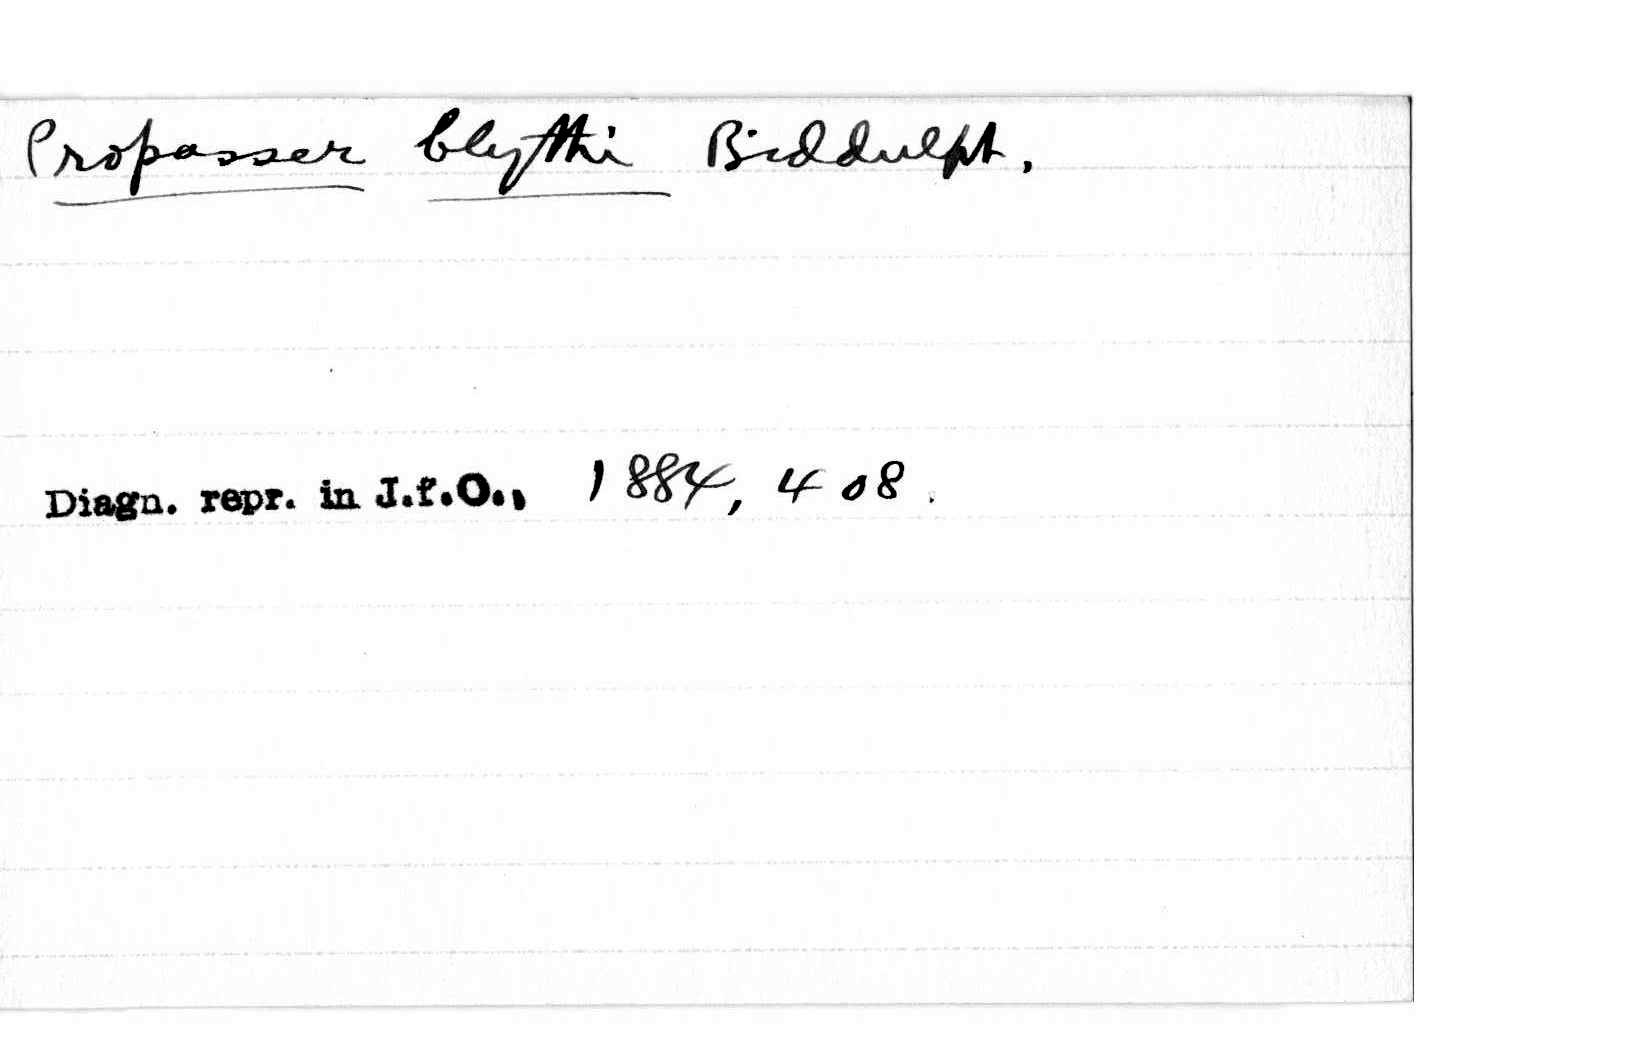 Propasser blythi Biddulph.
Diagn. repr. in J.f.O., 1884, 408.